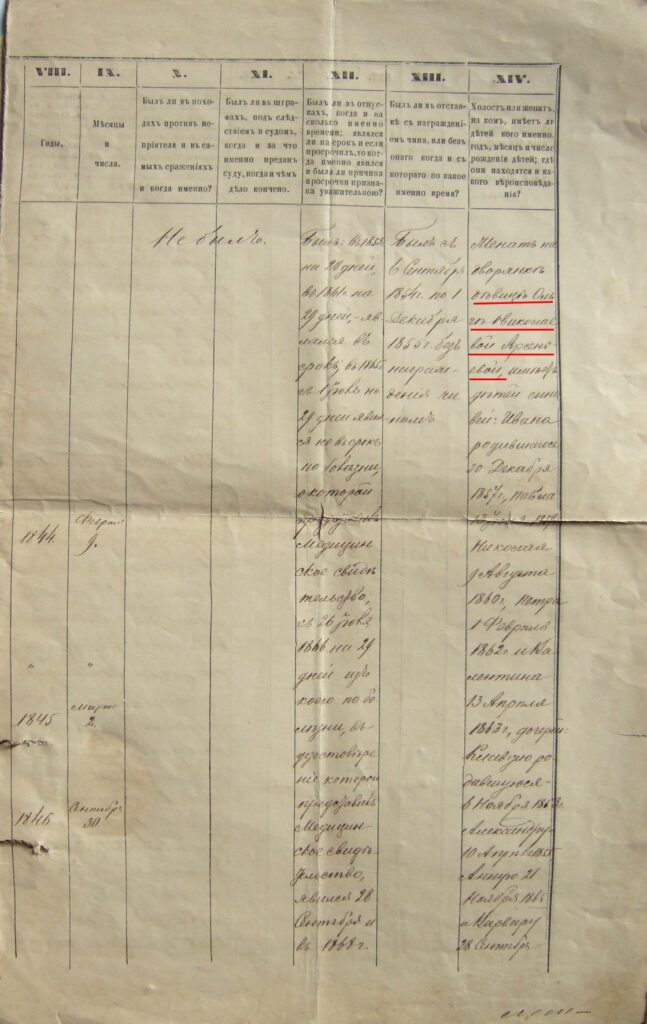 VIII.
IX.
X.
XI.
XII.
XIII.
XIV.
Годы.
Мѣсяцы
и
числа.
Былъ ли въ похо-
дахъ противъ не-
пріятеля и въ са-
мыхъ сраженіяхъ
и когда именно?
Былъ ли въ штра-
фахъ, подъ слѣд-
ствіемъ и судомъ,
когда и за что
именно преданъ
суду, когда и чѣмъ
дѣло кончено.
Былъ ли въ отпус-
кахъ, когда и на
сколько именно
времени; являлся
ли на срокъ и если
просрочилъ, то ког-
да именно явился
и была ли причина
просрочки призна-
на уважительною?
Былъ ли въ отставкѣ
съ награжденi-
емъ чина, или безъ
онаго когда и съ
котораго по какое
именно время?
Холостъ или женатъ,
на комъ, имѣетъ ли
дѣтей кого именно,
годъ, мѣсяцъ и число
рожденія дѣтей; гдѣ
они находятся и ка-
кого вѣроисповѣда-
нія?
1844
Феврал
9.
"
"
1845
Марта
2.
1846
Сентября
30
Не былъ.
Былъ: въ
на 28 дней,
въ на
29 дней, - яв-
лялся въ
срокъ; въ 1865
съ Іюня на
29 дней явил-
ся не въ срокъ
по болѣзни,
о которой
Медицин
ское свидѣ
тельство,
съ 26 Іюня
1866 на 29
дней изъ
коего по бо
лѣзни, въ
удостовѣре
ніе которой
представилъ
Медицин-
ское свидѣ-
тельство,
явился 28
Сентября и
въ 1868 г.
Былъ съ
6 Сентября
1854 г. по 1
Декабря
1855 г. безъ
награж-
денія чи-
номъ
Женатъ на
дворянкѣ
дѣвицѣ Оль
гѣ Николае
вой Арсень
евой, имѣетъ
дѣтей сыно
вей: Ивана
родившагося
30 Декабря
1857 г., Павла
Николая
9 Августа
1860 г., Петра
1 Февраля
1862 г. и Ва
лентина
13 Апрѣля
1863 г., дочерей:
ро
дившуюся
6 Ноября
Александру
10 Апрѣля
Анну 21
Ноября 1865
и Варвару
28 Сентября